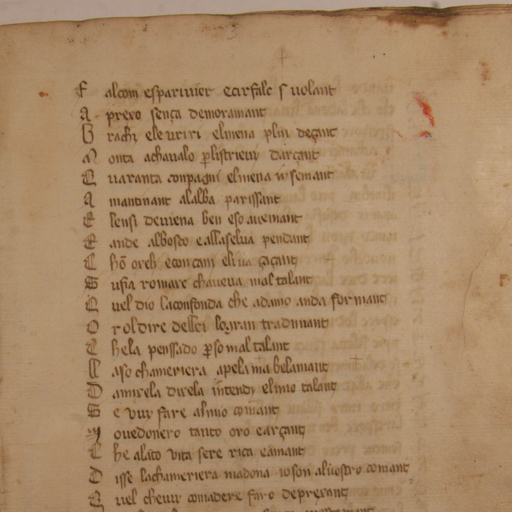 F alcom esparivier ecirfalc s volant
A prexo senca demoramant
B rachi eleuriri elmena plui deçant
M onta achavalo plistrieur darçant
Q uaranta conpagni elmena insemant
A mantinant alalba parissant
E lensi deviena ben eso avenant
E ande albosco eallaselva pendant
C hō orch econçam eliva çaçant
S usia romare chaveva mal talant
Q uel dio laconfonda che adamo anda formant
O roldire dellei logran tradimant
C hela penssado pso mal talant
U aso chameriera apela ma belamant
D amisela direla intendi elmio talant
S e vuy fare almio comant
Y ovedonero tanto oro earçant
C he alato vita sere rica eamant
D isse lachameriera madona ioson alvostro comant
Q uel chevuy comadere faro